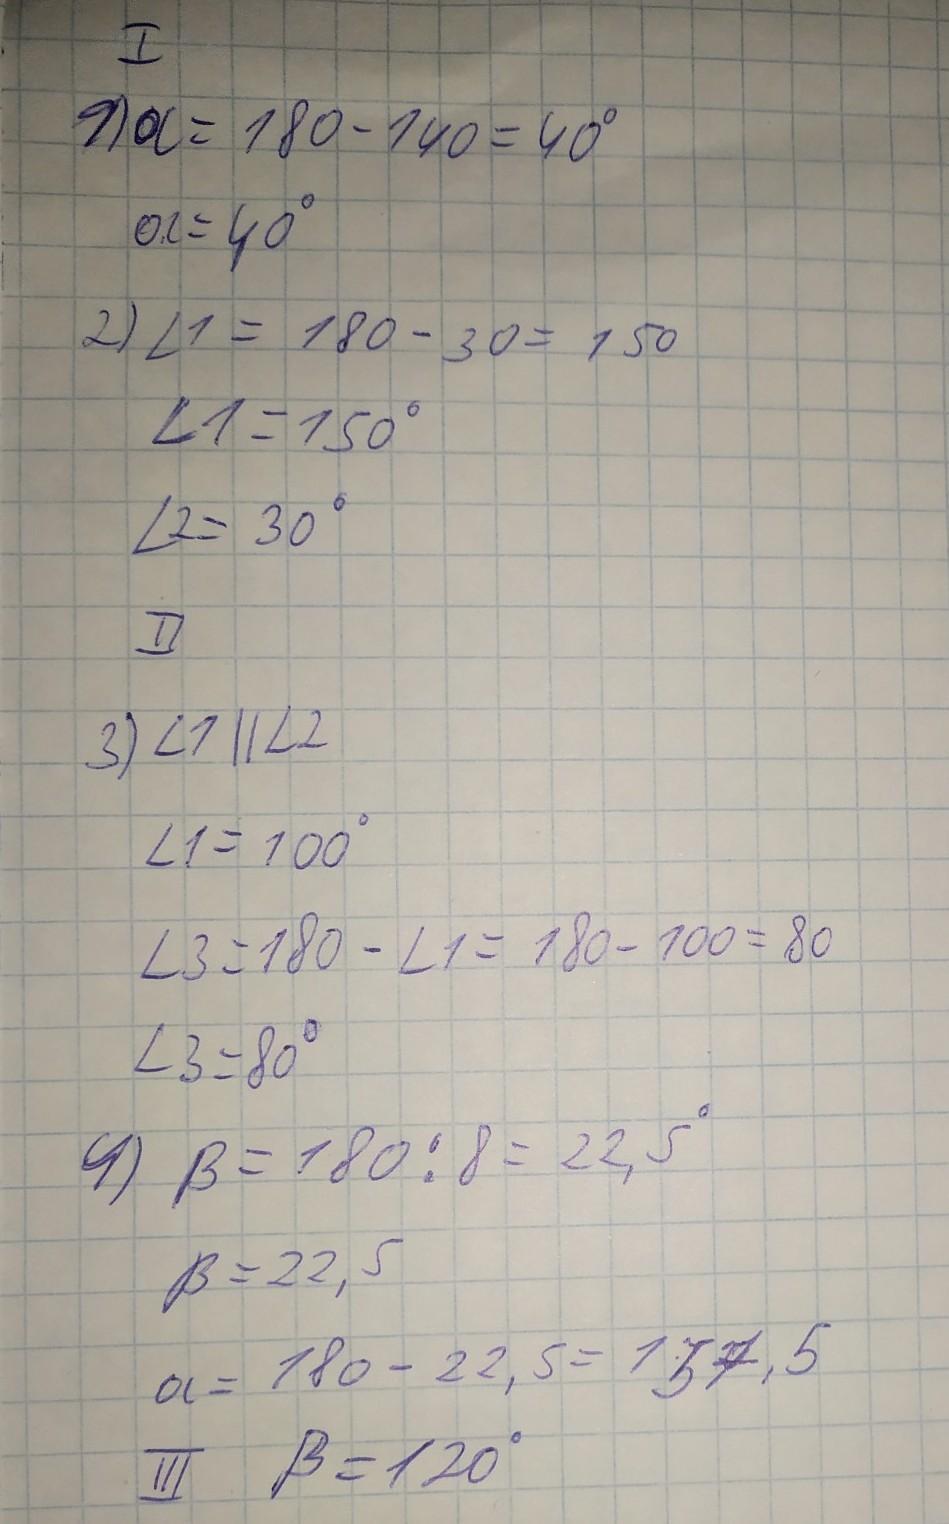 I
1) α = 180 - 140 = 40°
α = 40°
2) ∠1 = 180 - 30 = 150
∠1 = 150°
∠2 = 30°
II
3) ∠1 || ∠2
∠1 = 100°
∠3 = 180 - ∠1 = 180 - 100 = 80
∠3 = 80°
4) β = 180 : 8 = 22,5°
β = 22,5
α = 180 - 22,5 = 157,5
III β = 120°